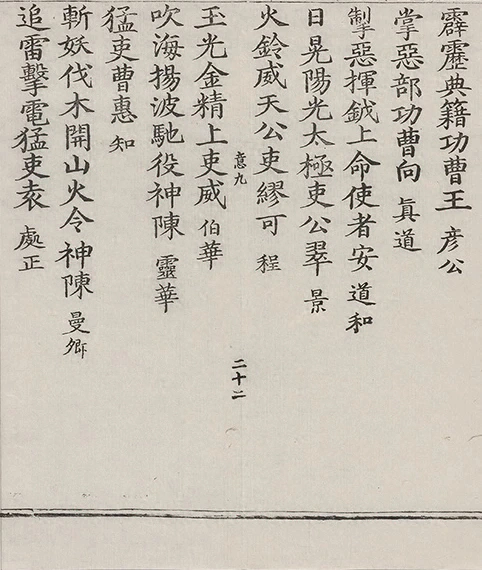 霹靂典籍功曹王彥公
掌惡部功曹向眞道
掣惡揮鉞上命使者安道和
日晃陽光太極吏公翠景
火鈴威天公吏繆可程
意九
二十二
玉光金精上吏威伯華
吹海揚波馳役神陳靈華
猛吏曹惠知
斬妖伐木開山火令神陳曼卿
追雷擊電猛吏袁處正